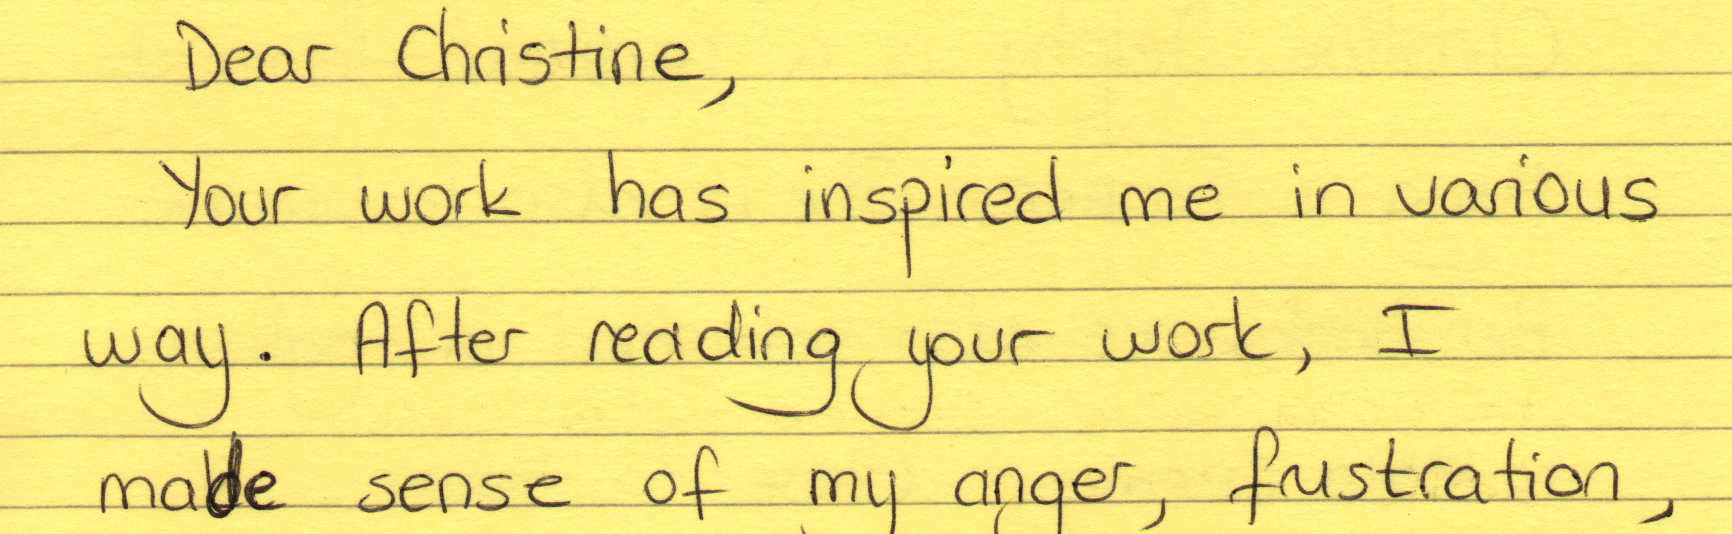 Dear Christine,
Your work has inspired me in various
way. After reading your work, I
made sense of my anger, frustration,